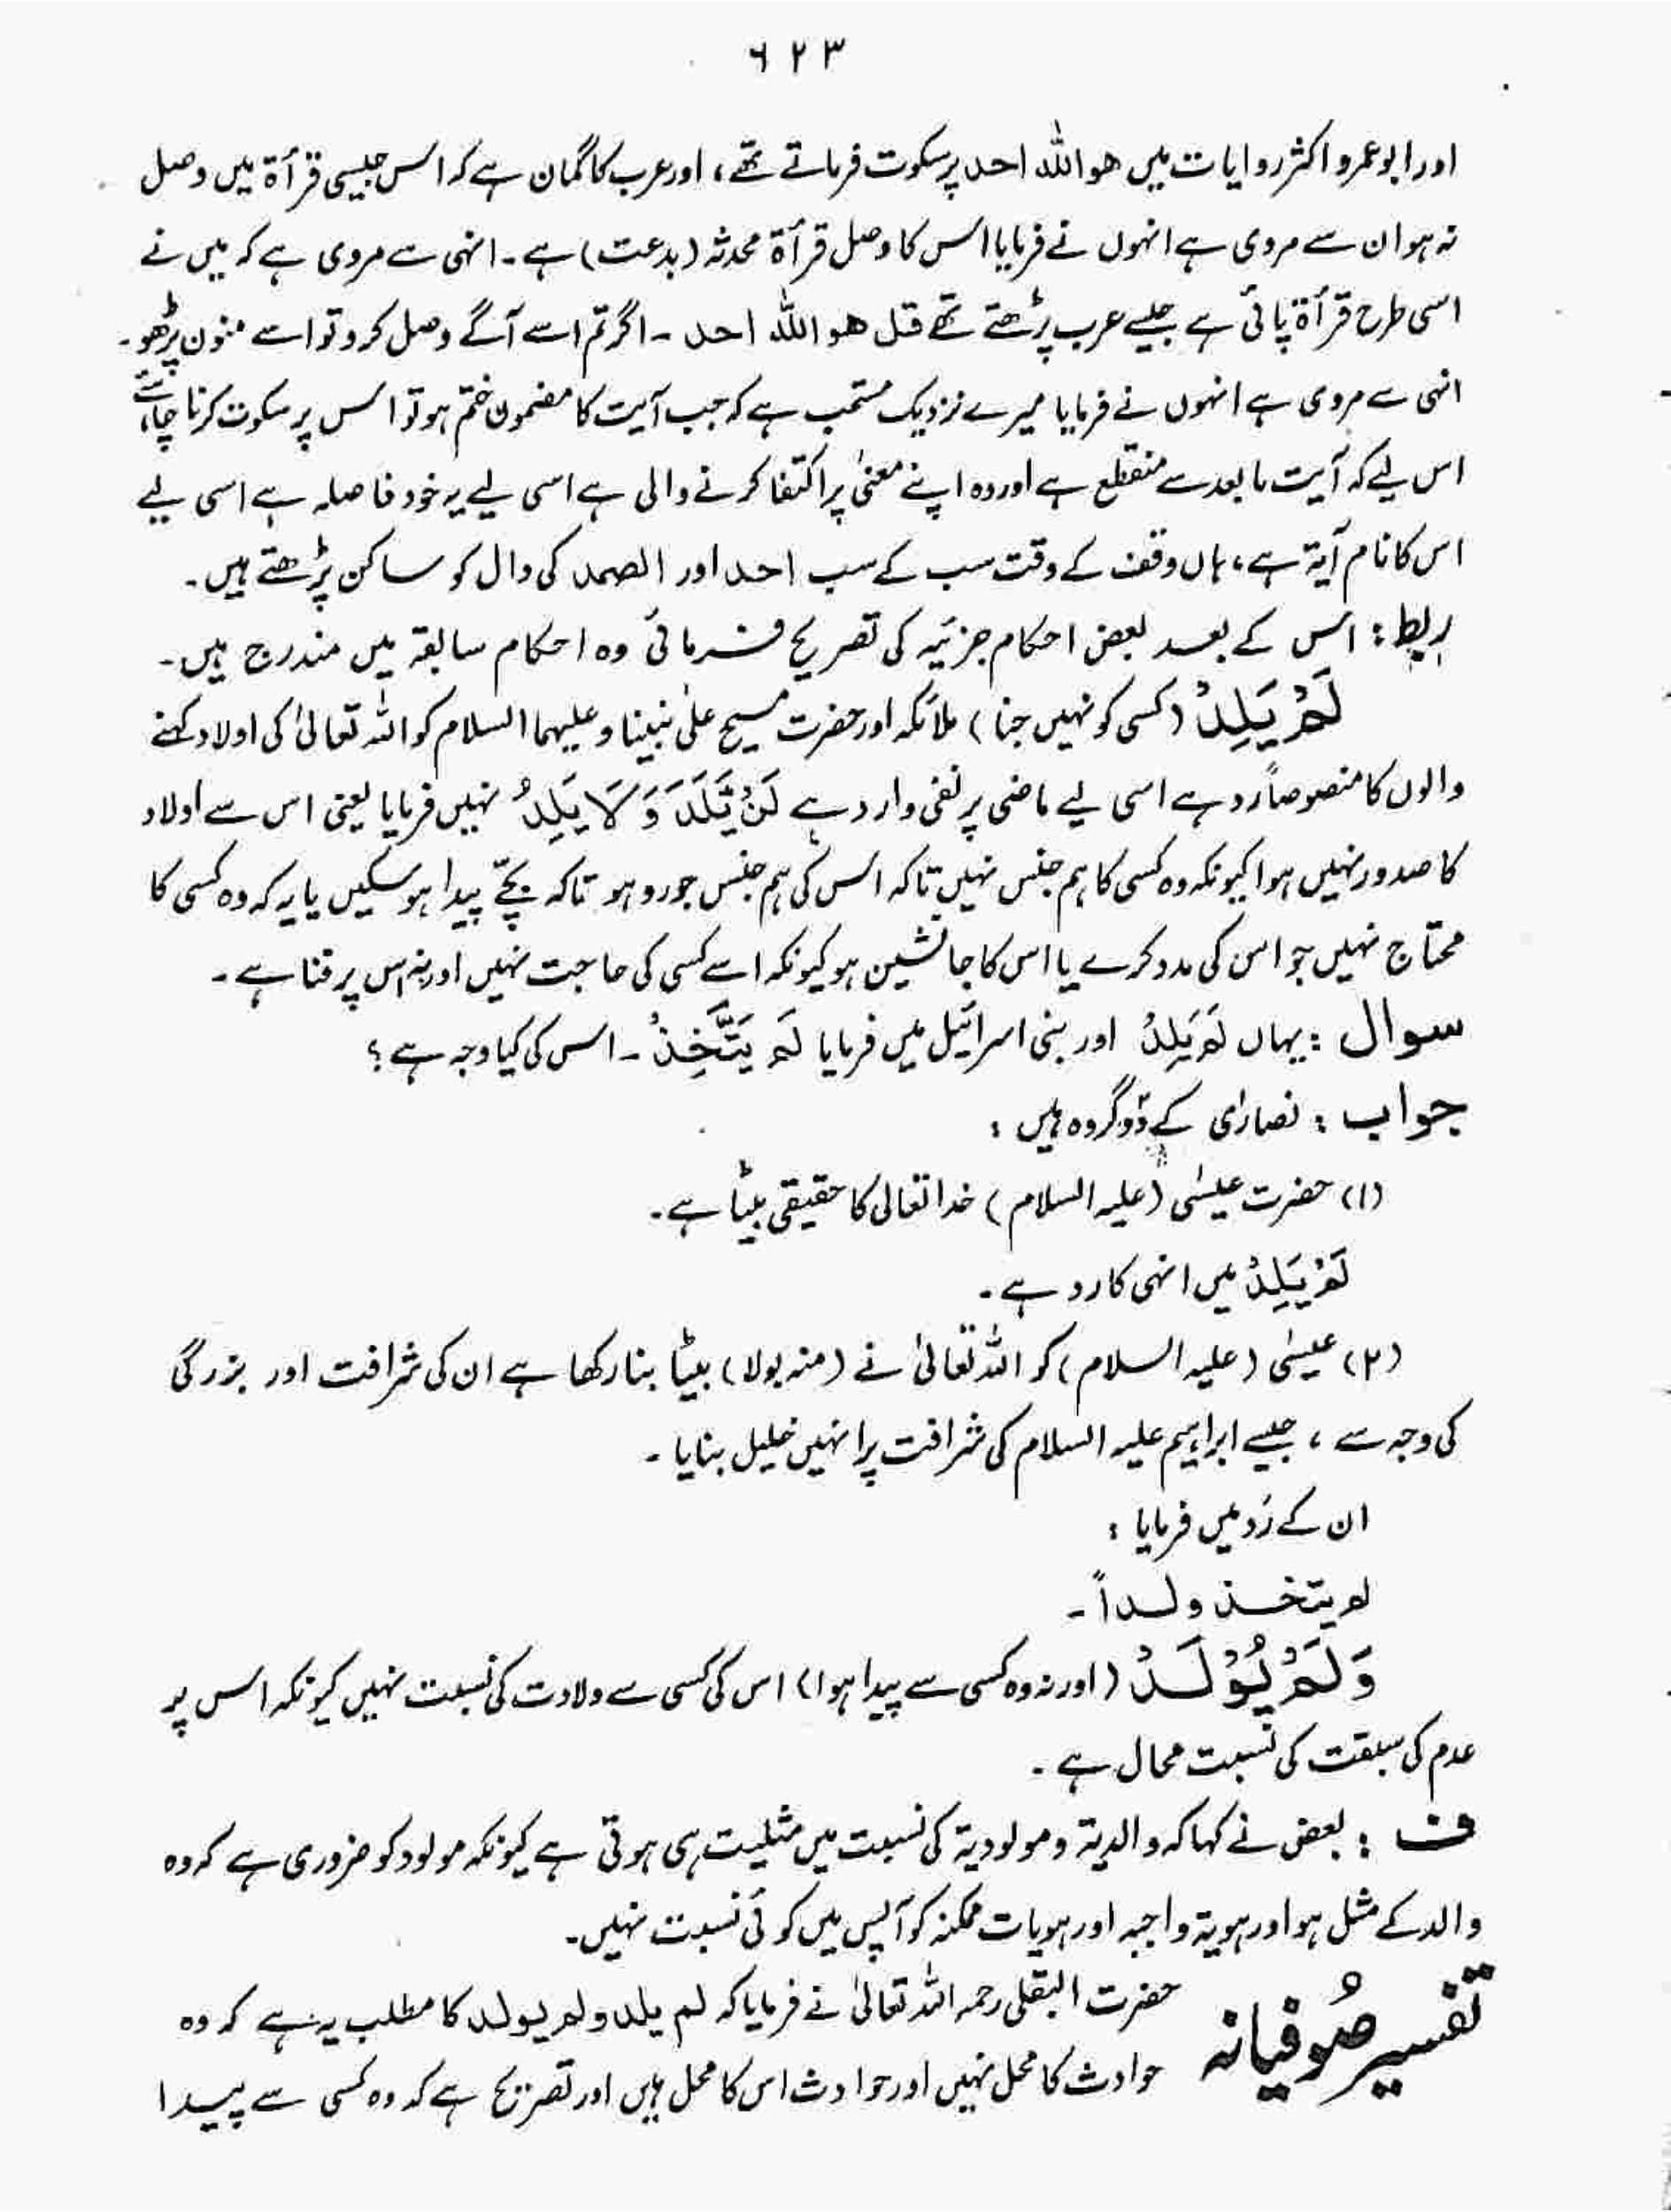 ۶۲۳
اور ابوعمرو اکثر روایات میں هو الله احد پر سکوت فرماتے تھے، اور عرب کا گمان ہے کہ اس جیسی قرأۃ میں وصل
نہ ہو ان سے مروی ہے انہوں نے فرمایا اس کا وصل قرأۃ محدثہ (بدعت) ہے۔ انہی سے مروی ہے کہ میں نے
اسی طرح قرأۃ پائی ہے جیسے عرب پڑھتے تھے قل هو الله احد ۔ اگر تم اسے آگے وصل کرو تو اسے منون پڑھو۔
انہی سے مروی ہے انہوں نے فرمایا میرے نزدیک مستحب ہے کہ جب آیت کا مضمون ختم ہو تو اس پر سکوت کرنا چاہئے
اس لیے کہ آیت مابعد سے منقطع ہے اور وہ اپنے معنیٰ پر اکتفا کرنے والی ہے اسی لیے یہ خود فاصلہ ہے اسی لیے
اس کا نام آیۃ ہے، ہاں وقف کے وقت سب کے سب احد اور الصمد کی دال کو ساکن پڑھتے ہیں۔
ربط : اس کے بعد بعض احکام جزئیہ کی تصریح فرمائی وہ احکام سابقہ میں مندرج ہیں۔
لَمْ يَلِدْ (کسی کو نہیں جنا) ملائکہ اور حضرت مسیح علیٰ نبینا و علیہما السلام کو اللہ تعالیٰ کی اولاد کہنے
والوں کا منصوصاً رد ہے اسی لیے ماضی پر نفی وارد ہے لَنْ يَّلَدَ وَ لَا يَلِدُ نہیں فرمایا یعنی اس سے اولاد
کا صدور نہیں ہوا کیونکہ وہ کسی کا ہم جنس نہیں تاکہ اس کی ہم جنس جورو ہو تاکہ بچّے پیدا ہو سکیں یا یہ کہ وہ کسی کا
محتاج نہیں جو اس کی مدد کرے یا اس کا جانشین ہو کیونکہ اسے کسی کی حاجت نہیں اور نہ اس پر فنا ہے۔
سوال : یہاں لَمْ يَلِدْ اور بنی اسرائیل میں فرمایا لَمْ يَتَّخِذْ ۔ اس کی کیا وجہ ہے ؟
جواب : نصاریٰ کے دو گروہ ہیں :
(۱) حضرت عیسٰی (علیہ السلام) خدا تعالیٰ کا حقیقی بیٹا ہے۔
لَمْ يَلِدْ میں انہی کا رد ہے۔
(۲) عیسٰی (علیہ السلام) کو اللہ تعالیٰ نے (منہ بولا) بیٹا بنا رکھا ہے ان کی شرافت اور بزرگی
کی وجہ سے ، جیسے ابراہیم علیہ السلام کی شرافت پر انہیں خلیل بنایا ۔
ان کے رَد میں فرمایا :
لم یتخذ ولداً۔
وَلَمْ يُوْلَدْ (اور نہ وہ کسی سے پیدا ہوا) اس کی کسی سے ولادت کی نسبت نہیں کیونکہ اس پر
عدم کی سبقت کی نسبت محال ہے ۔
ف : بعض نے کہا کہ والدیۃ و مولودیۃ کی نسبت میں مثلیت ہی ہوتی ہے کیونکہ مولود کو ضروری ہے کہ وہ
والد کے مثل ہو اور ہویۃ واجبہ اور ہویات ممکنہ کو آپس میں کوئی نسبت نہیں۔
تفسیر صُوفیانہ حضرت البقلی رحمہ اللہ تعالیٰ نے فرمایا کہ لم یلد ولم یولد کا مطلب یہ ہے کہ وہ
حوادث کا محل نہیں اور حوادث اس کا محل ہیں اور تصریح ہے کہ وہ کسی سے پیدا